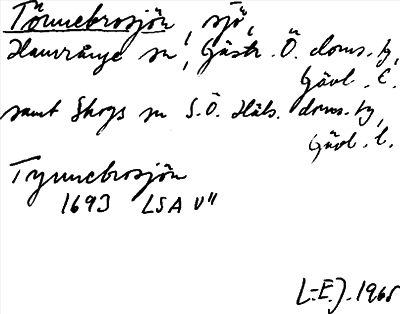 Törnebrosjön, sjö,
Hamrånge sn, Gästr. Ö. doms. tg,
Gävl. l.
samt Skogs sn S. Ö. Häls. doms. tg,
Gävl. l.
Tynnebrosjön
1693 LSA V"
L-E.J. 1965